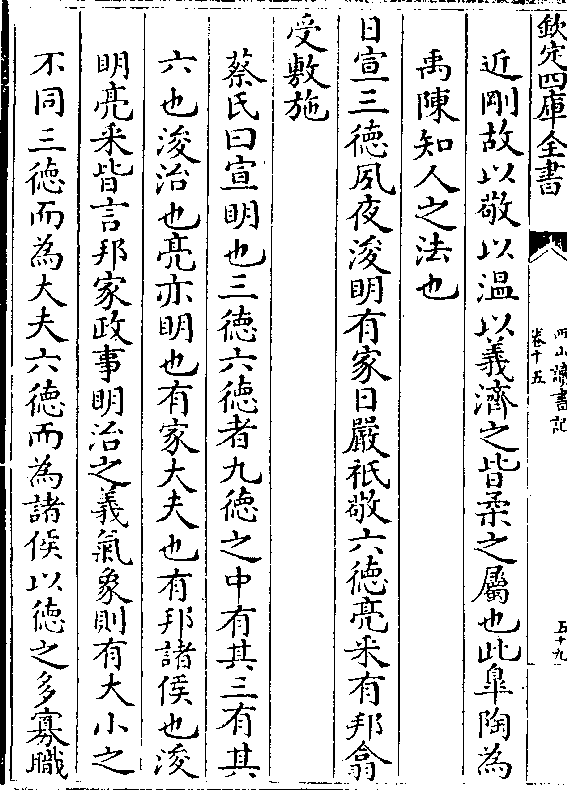 欽定四庫全書
西山讀書記
卷十五
五十九
近剛故以敬以溫以義濟之皆柔之屬也此臯陶為
禹陳知人之法也
日宣三徳夙夜浚明有家日嚴祗敬六徳亮采有邦翕
受敷施
蔡氏曰宣明也三徳六徳者九徳之中有其三有其
六也浚治也亮亦明也有家大夫也有邦諸侯也浚
明亮采皆言邦家政事明治之義氣象則有大小之
不同三徳而為大夫六徳而為諸侯以徳之多寡職